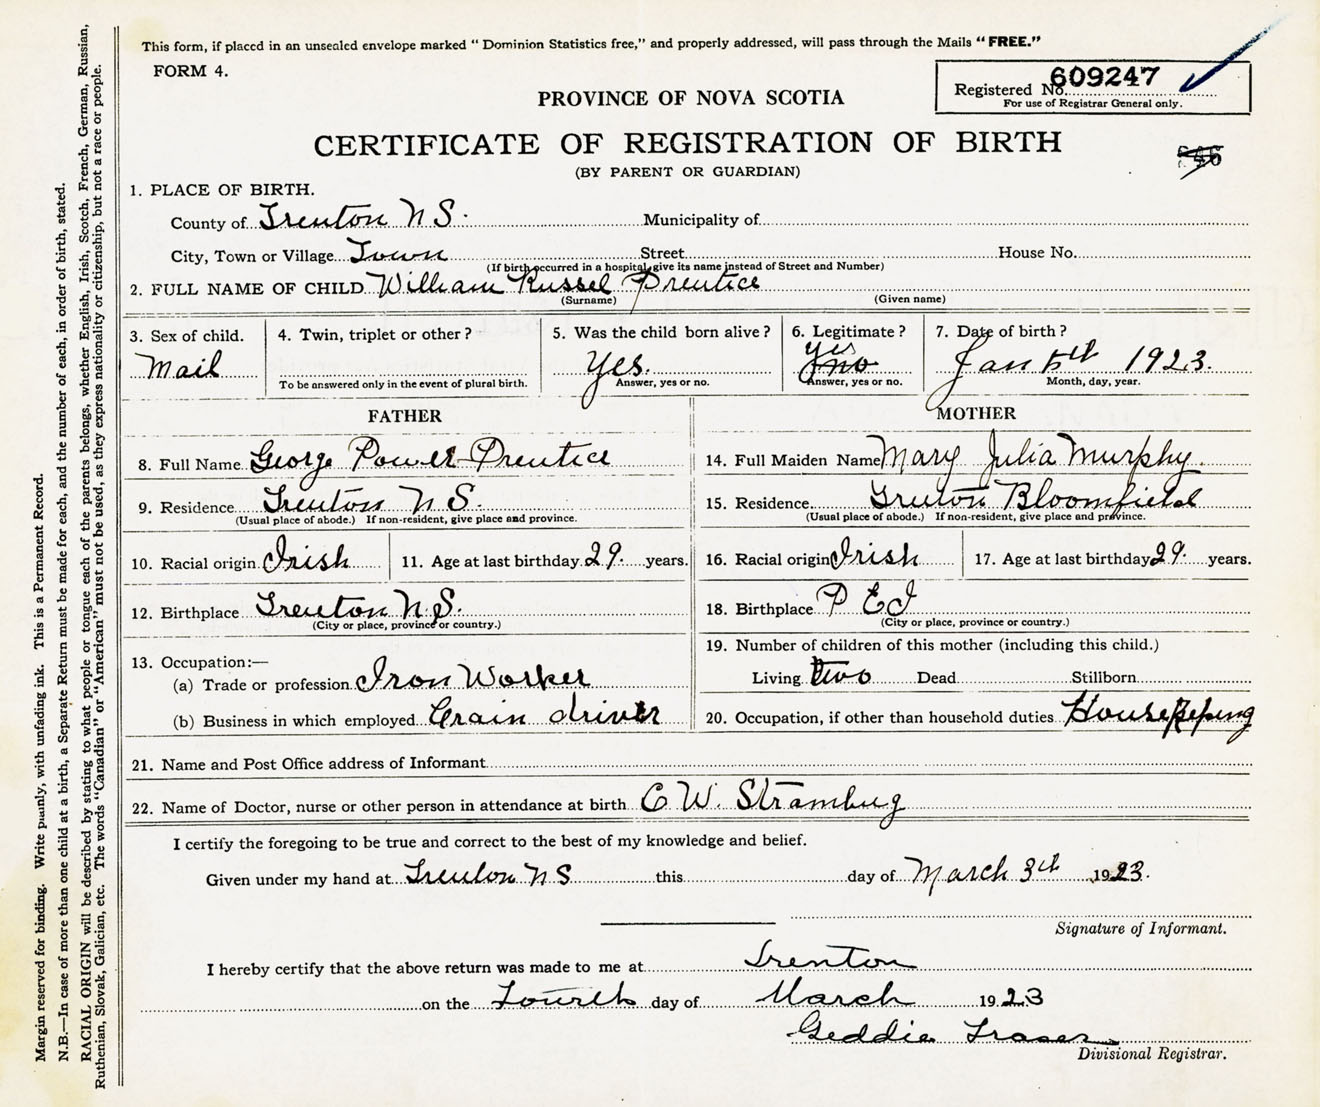 This form, if placed in an unsealed envelope marked “Dominion Statistics free,” and properly addressed, will pass through the Mails “FREE.”
FORM 4.
Registered No. 609247
For use of Registrar General only.
PROVINCE OF NOVA SCOTIA
CERTIFICATE OF REGISTRATION OF BIRTH
(BY PARENT OR GUARDIAN)
1. PLACE OF BIRTH.
County of Trenton N S. Municipality of
City, Town or Village Town Street House No.
(If birth occurred in a hospital, give its name instead of Street and Number)
2. FULL NAME OF CHILD William Russel Prentice
(Surname) (Given name)
3. Sex of child. 4. Twin, triplet or other? 5. Was the child born alive? 6. Legitimate? 7. Date of birth?
Mail Yes. yes no Jan 5th 1923.
To be answered only in the event of plural birth. Answer, yes or no. Answer, yes or no. Month, day, year.
FATHER MOTHER
8. Full Name George Power Prentice 14. Full Maiden Name Mary Julia Murphy.
9. Residence Trenton N S. 15. Residence Trenton Bloomfield
(Usual place of abode.) If non-resident, give place and province. (Usual place of abode.) If non-resident, give place and province.
10. Racial origin Irish 11. Age at last birthday 29. years. 16. Racial origin Irish 17. Age at last birthday 29. years.
12. Birthplace Trenton N.S. 18. Birthplace P E I
(City or place, province or country.) (City or place, province or country.)
19. Number of children of this mother (including this child.)
13. Occupation:—
(a) Trade or profession Iron Worker Living two Dead Stillborn
(b) Business in which employed Crain driver 20. Occupation, if other than household duties Housekeping
21. Name and Post Office address of Informant
22. Name of Doctor, nurse or other person in attendance at birth C W.
I certify the foregoing to be true and correct to the best of my knowledge and belief.
Given under my hand at Trenton N S this day of March 3th 1923.
Signature of Informant.
I hereby certify that the above return was made to me at Trenton
on the Fourth day of March 1923
Geddie Fraser
Divisional Registrar.
Margin reserved for binding. Write plainly, with unfading ink. This is a Permanent Record.
N.B.—In case of more than one child at a birth, a Separate Return must be made for each, and the number of each, in order of birth, stated.
RACIAL ORIGIN will be described by stating to what people or tongue each of the parents belongs, whether English, Irish, Scotch, French, German, Russian,
Ruthenian, Slovak, Galician, etc. The words “Canadian” or “American” must not be used, as they express nationality or citizenship, but not a race or people.